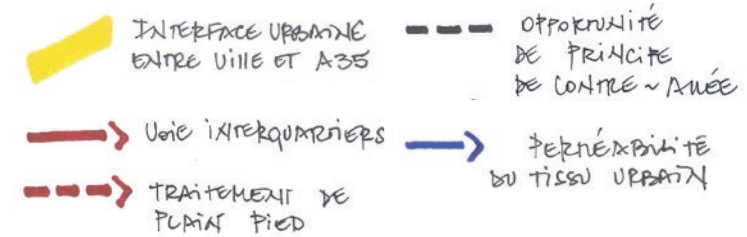 INTERFACE URBAINE
ENTRE VILLE ET A35
VOIE INTERQUARTIERS
TRAITEMENT DE
PLAIN PIED
OPPORTUNITÉ
DE PRINCIPE
DE CONTRE ~ ALLÉE
PERMÉABILITÉ
DU TISSU URBAIN